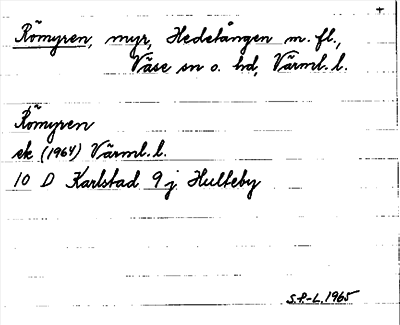 +
Römyren, myr, Hedetången m.fl.,
Väse sn o. hd, Värml.l.
Römyren
ek (1964) Värml.l.
10 D Karlstad 9 j Hulteby
S.P-L. 1965